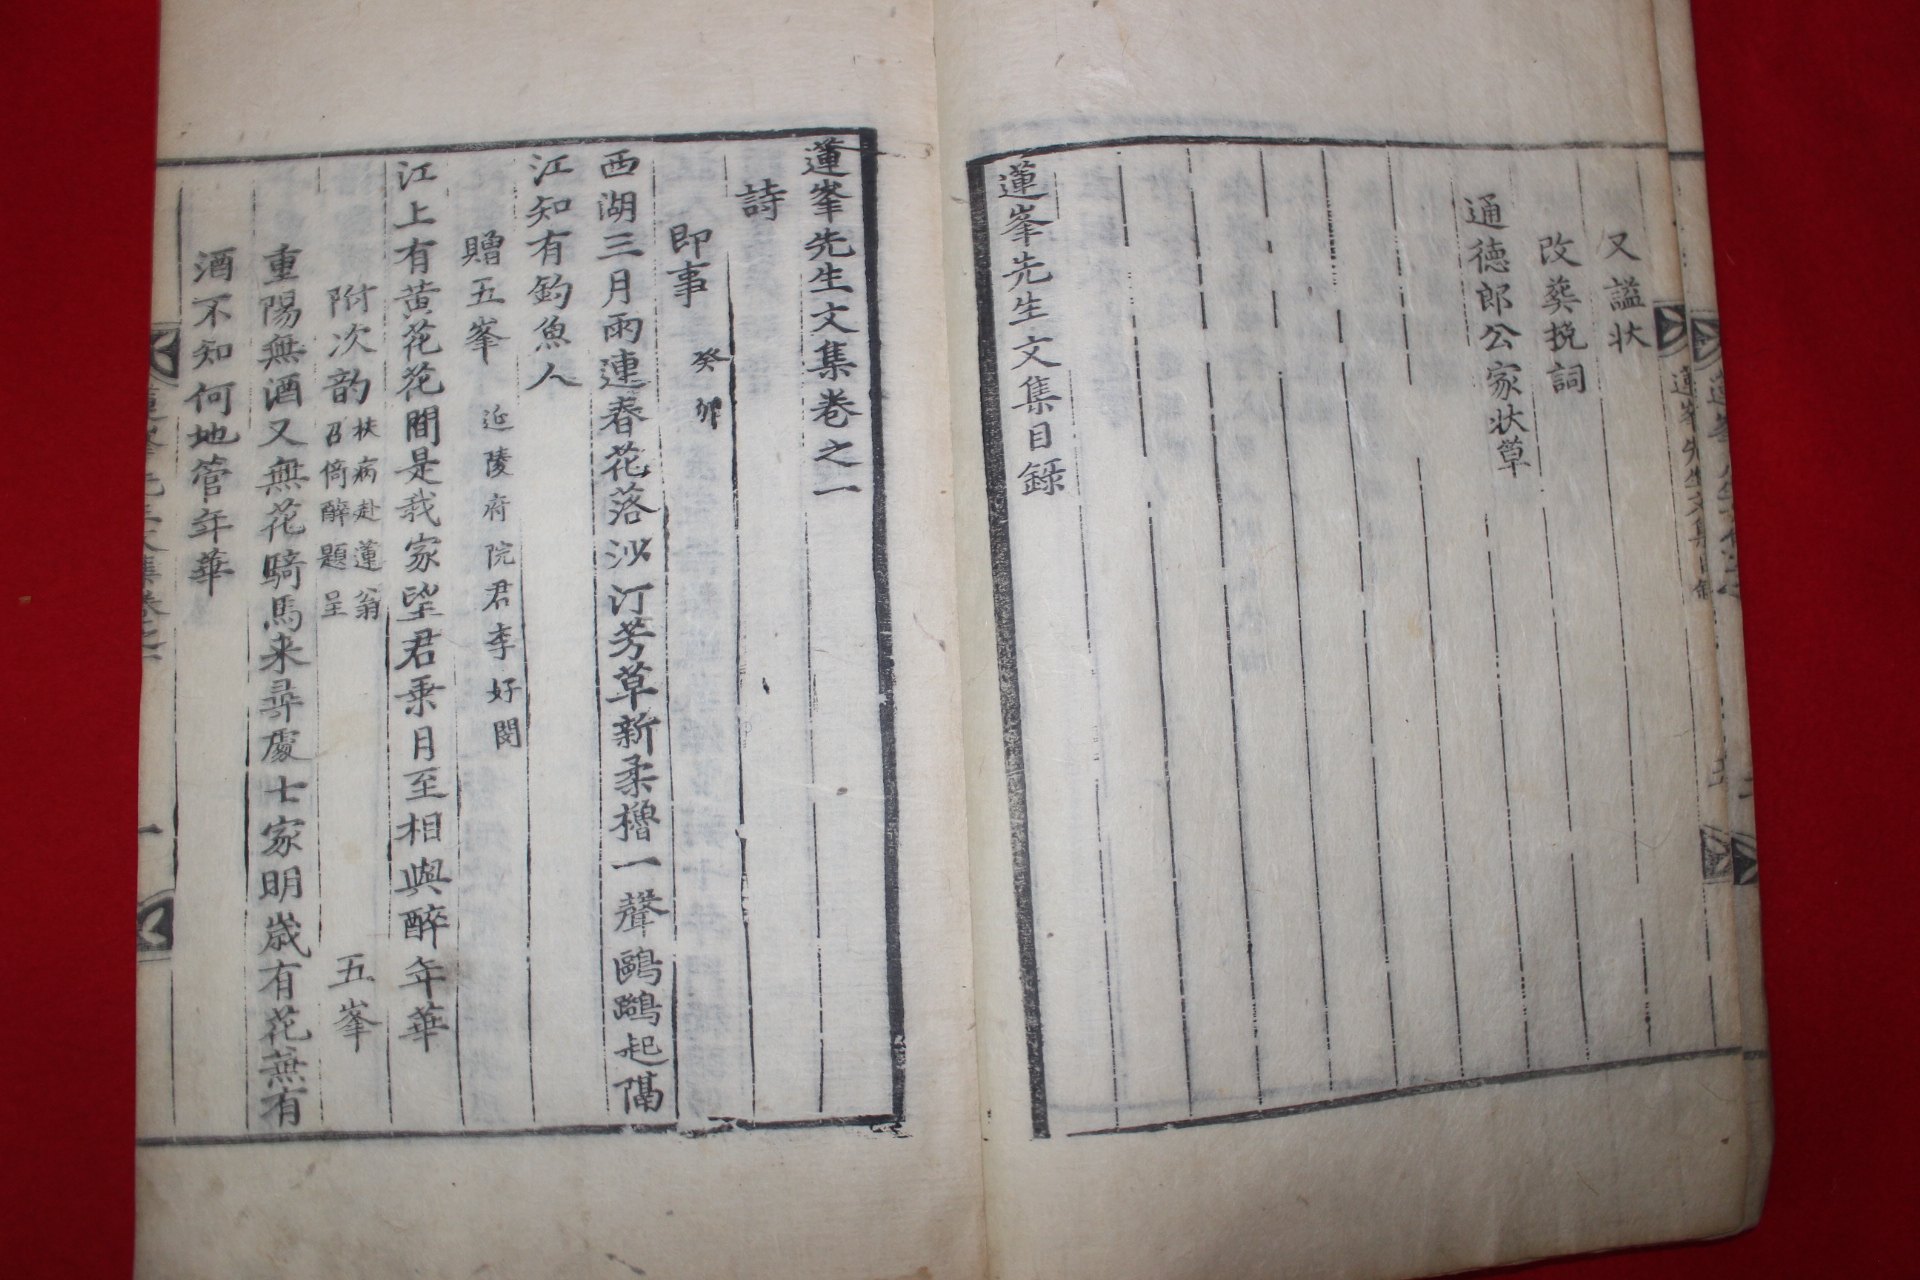 又謚状
改葬挽詞
通德郎公家状草
蓮峯先生文集目錄
蓮峯先生文集卷之一
詩
即事 癸卯
西湖三月雨連春花落沙汀芳草新柔櫓一聲鷗鷀起隔
江知有釣魚人
贈五峯 延陵府院君李好閔
江上有黄花花間是我家望君乗月至相與醉年華
附次韵 扶病赴蓮翁
召倚醉題呈 五峯
重陽無酒又無花騎馬来尋處士家明歳有花兼有
酒不知何地管年華